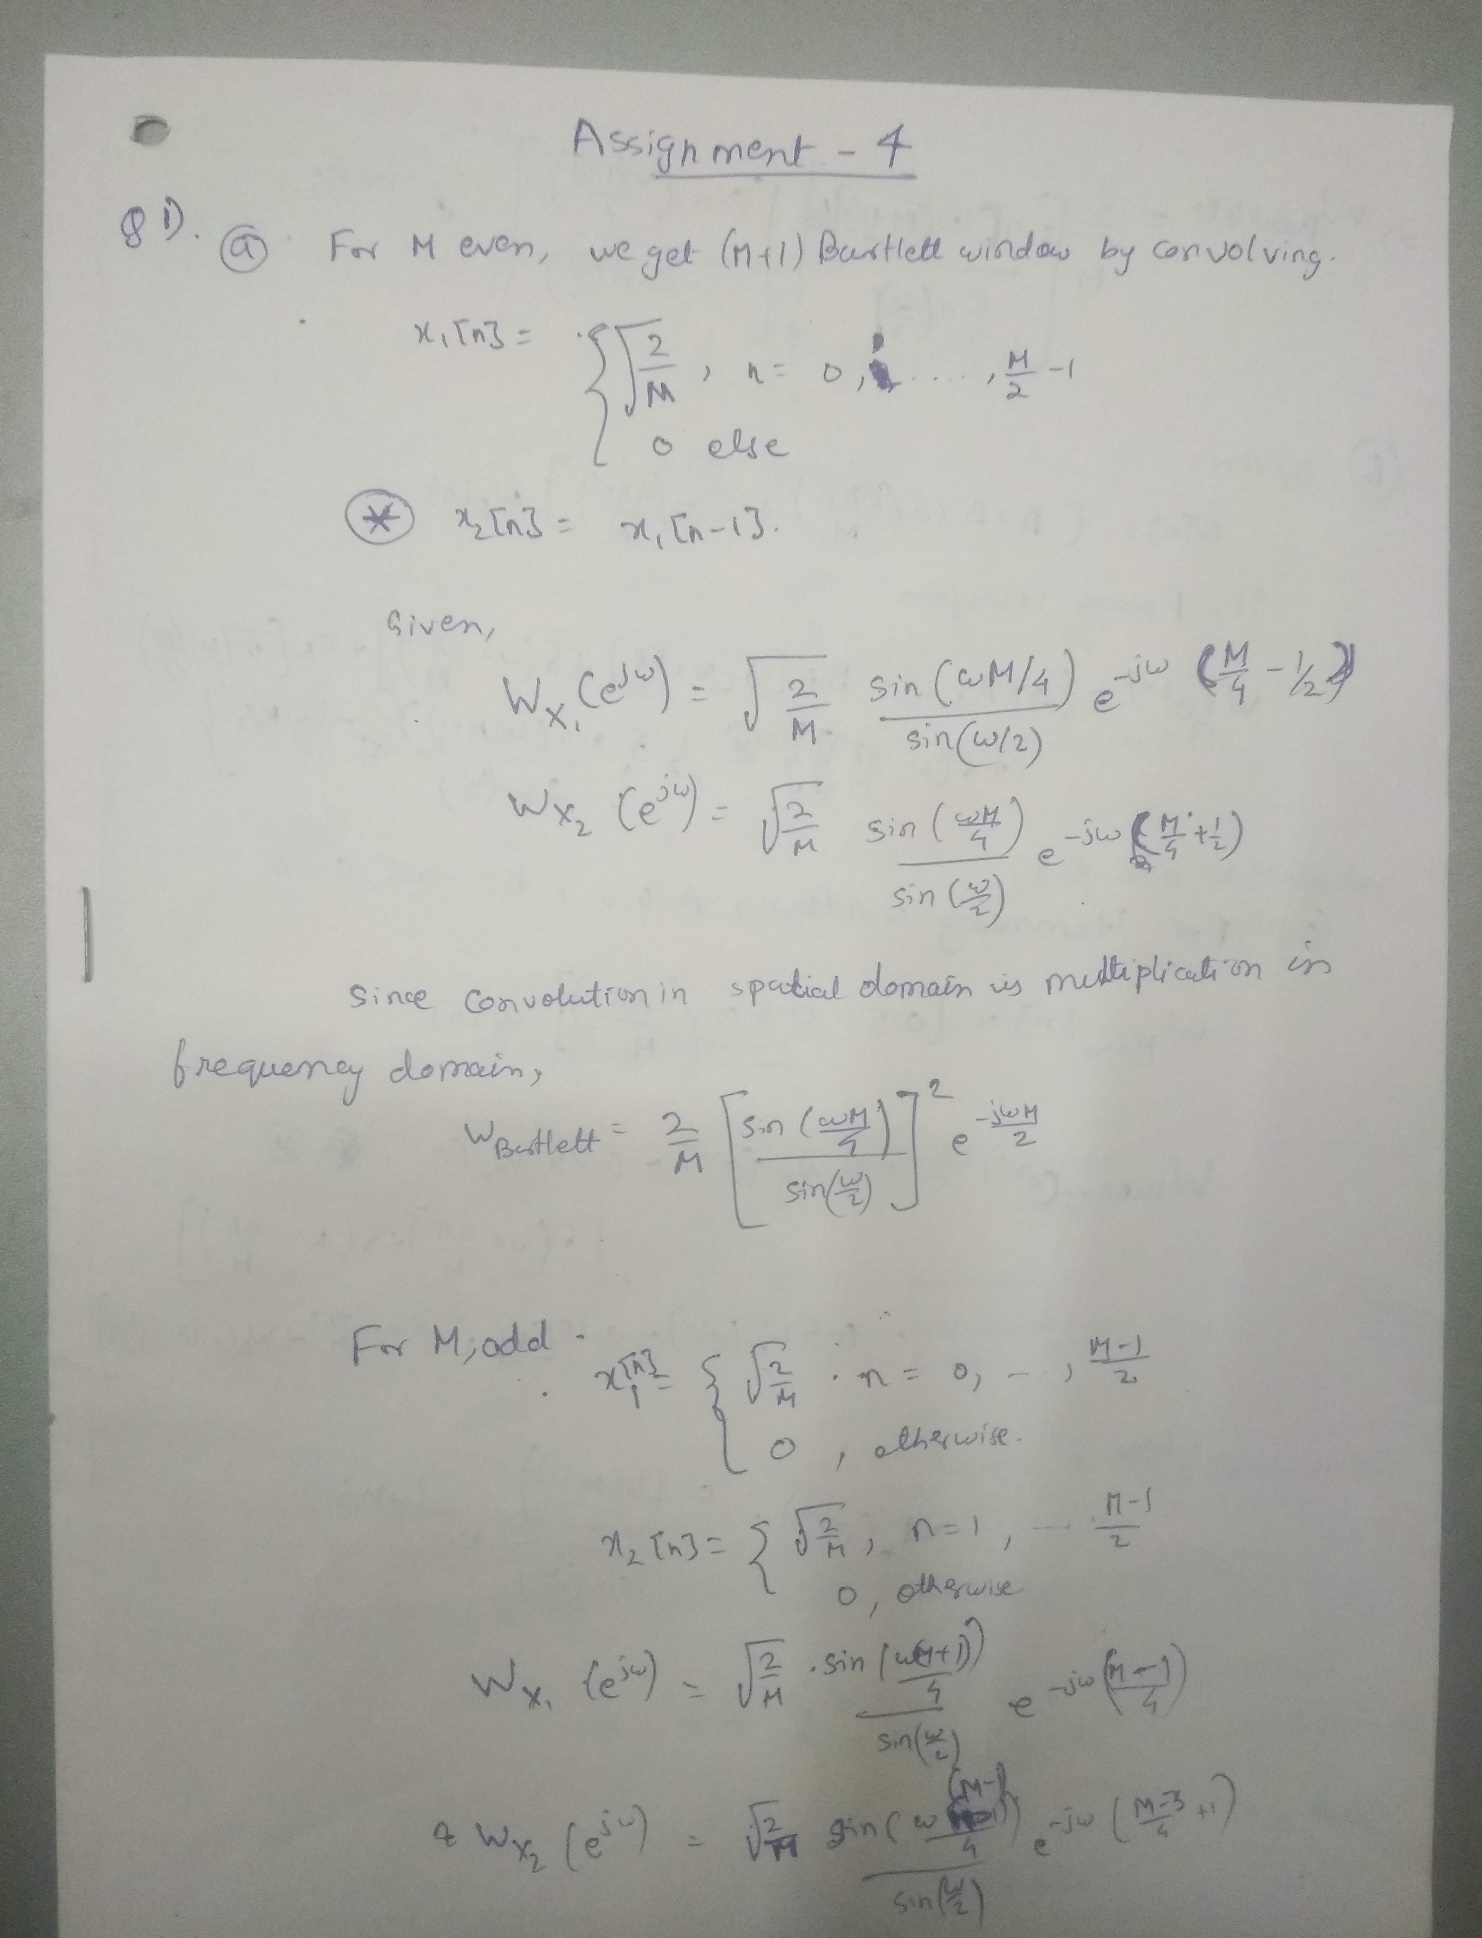 Assignment - 4
Q 1). (a) For M even, we get (M+1) Bartlett window by convolving.
x₁[n] = { √(2/M) , n = 0, 1, ...., M/2 - 1
0 else
(*) x₂[n] = x₁[n-1].
Given,
W_X₁(e^jω) = √(2/M) sin(ωM/4) / sin(ω/2) e^-jω (M/4 - 1/2)
W_X₂(e^jω) = √(2/M) sin(ωM/4) / sin(ω/2) e^-jω (M/4 + 1/2)
Since convolution in spatial domain is multiplication in
frequency domain,
W_Bartlett = 2/M [sin(ωM/4) / sin(ω/2)]² e^-jωM/2
For M, odd - x₁[n] = { √(2/M) . n = 0, - . , (M-1)/2
0 , otherwise.
x₂[n] = { √(2/M) , n = 1, --- (M-1)/2
0, otherwise
W_X₁(e^jω) = √(2/M) . sin(ω(M+1)/4) / sin(ω/2) e^-jω((M-1)/4)
& W_X₂(e^jω) = √(2/M) sin(ω(M-1)/4) / sin(ω/2) e^-jω((M-3)/4 + 1)